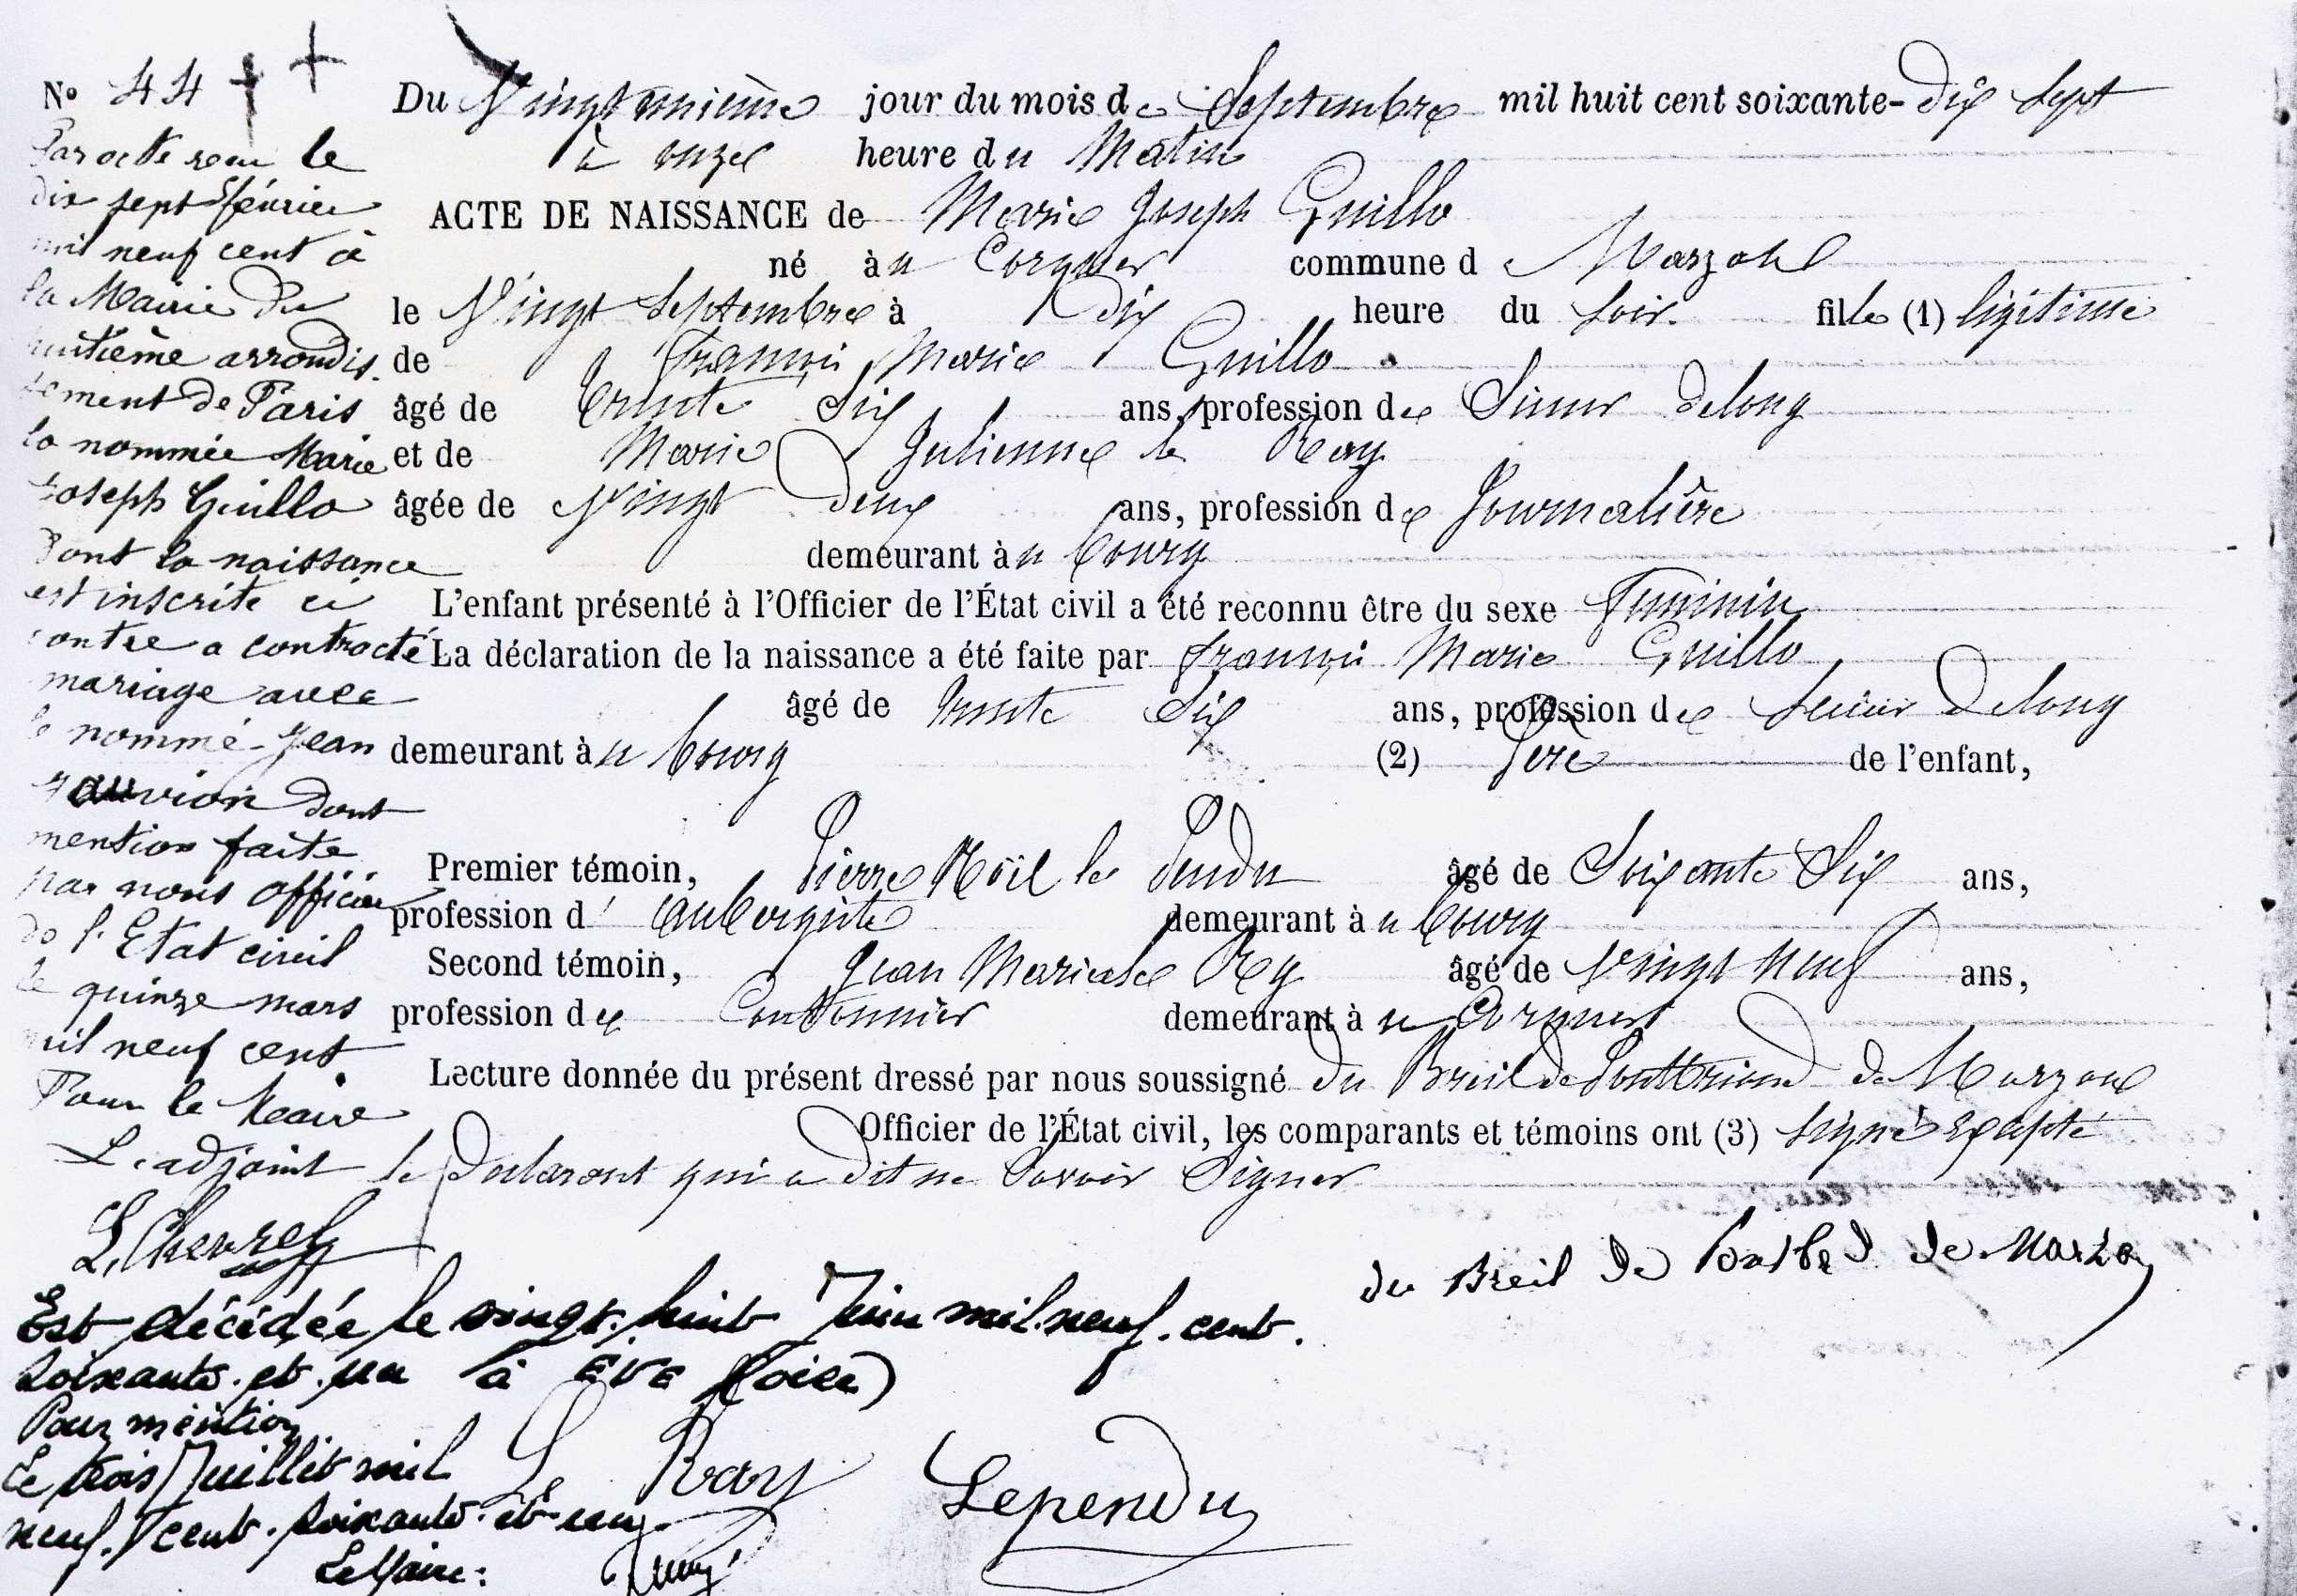 N° 44
Du Vingt unième jour du mois de Septembre mil huit cent soixante-dix sept
à onze heure du Matin
ACTE DE NAISSANCE de Marie Joseph Guillo
né à commune de Marzan
le Vingt Septembre à dix heure du soir fille (1) légitime
de François Marie Guillo
âgé de trente six ans, profession de Sieur de long
et de Marie Julienne le Ray
âgée de Vingt deux ans, profession de Journalière
demeurant au bourg
L'enfant présenté à l'Officier de l'État civil a été reconnu être du sexe Feminin
La déclaration de la naissance a été faite par François Marie Guillo
âgé de trente Six ans, profession de Scieur De long
demeurant à u bourg (2) Père de l'enfant,
Premier témoin, Pierre Noël le Pendu âgé de Soixante Six ans,
profession d' aubergiste demeurant à u bourg
Second témoin, Jean Marie le Ray âgé de Vingt neuf ans,
profession de Cantonnier demeurant à u
Lecture donnée du présent dressé par nous soussigné du Breil de Pontbriand de Marzan
Officier de l'État civil, les comparants et témoins ont (3) signé excepté
le Déclarant qui a dit ne Savoir Signer
Par acte reçu le
dix sept février
mil neuf cent à
la Mairie du
huitième arrondis-
sement de Paris
la nommée Marie
Joseph Guillo
Dont la naissance
est inscrite ci
contre a contracté
mariage avec
le nommé Jean
dont
mention faite
par nous officier
de l'Etat civil
le quinze mars
mil neuf cent.
Pour le Maire
L'adjoint
L. Chevrel
du Breil de Pontb de Marzan
Est décédée le vingt-huit Juin mil-neuf-cent-
soixante-et-un à EVE (Oise)
Pour mention
Le trois Juillet mil
neuf-cent-soixante-et-un
Le Maire:
Le Ray
Lependu